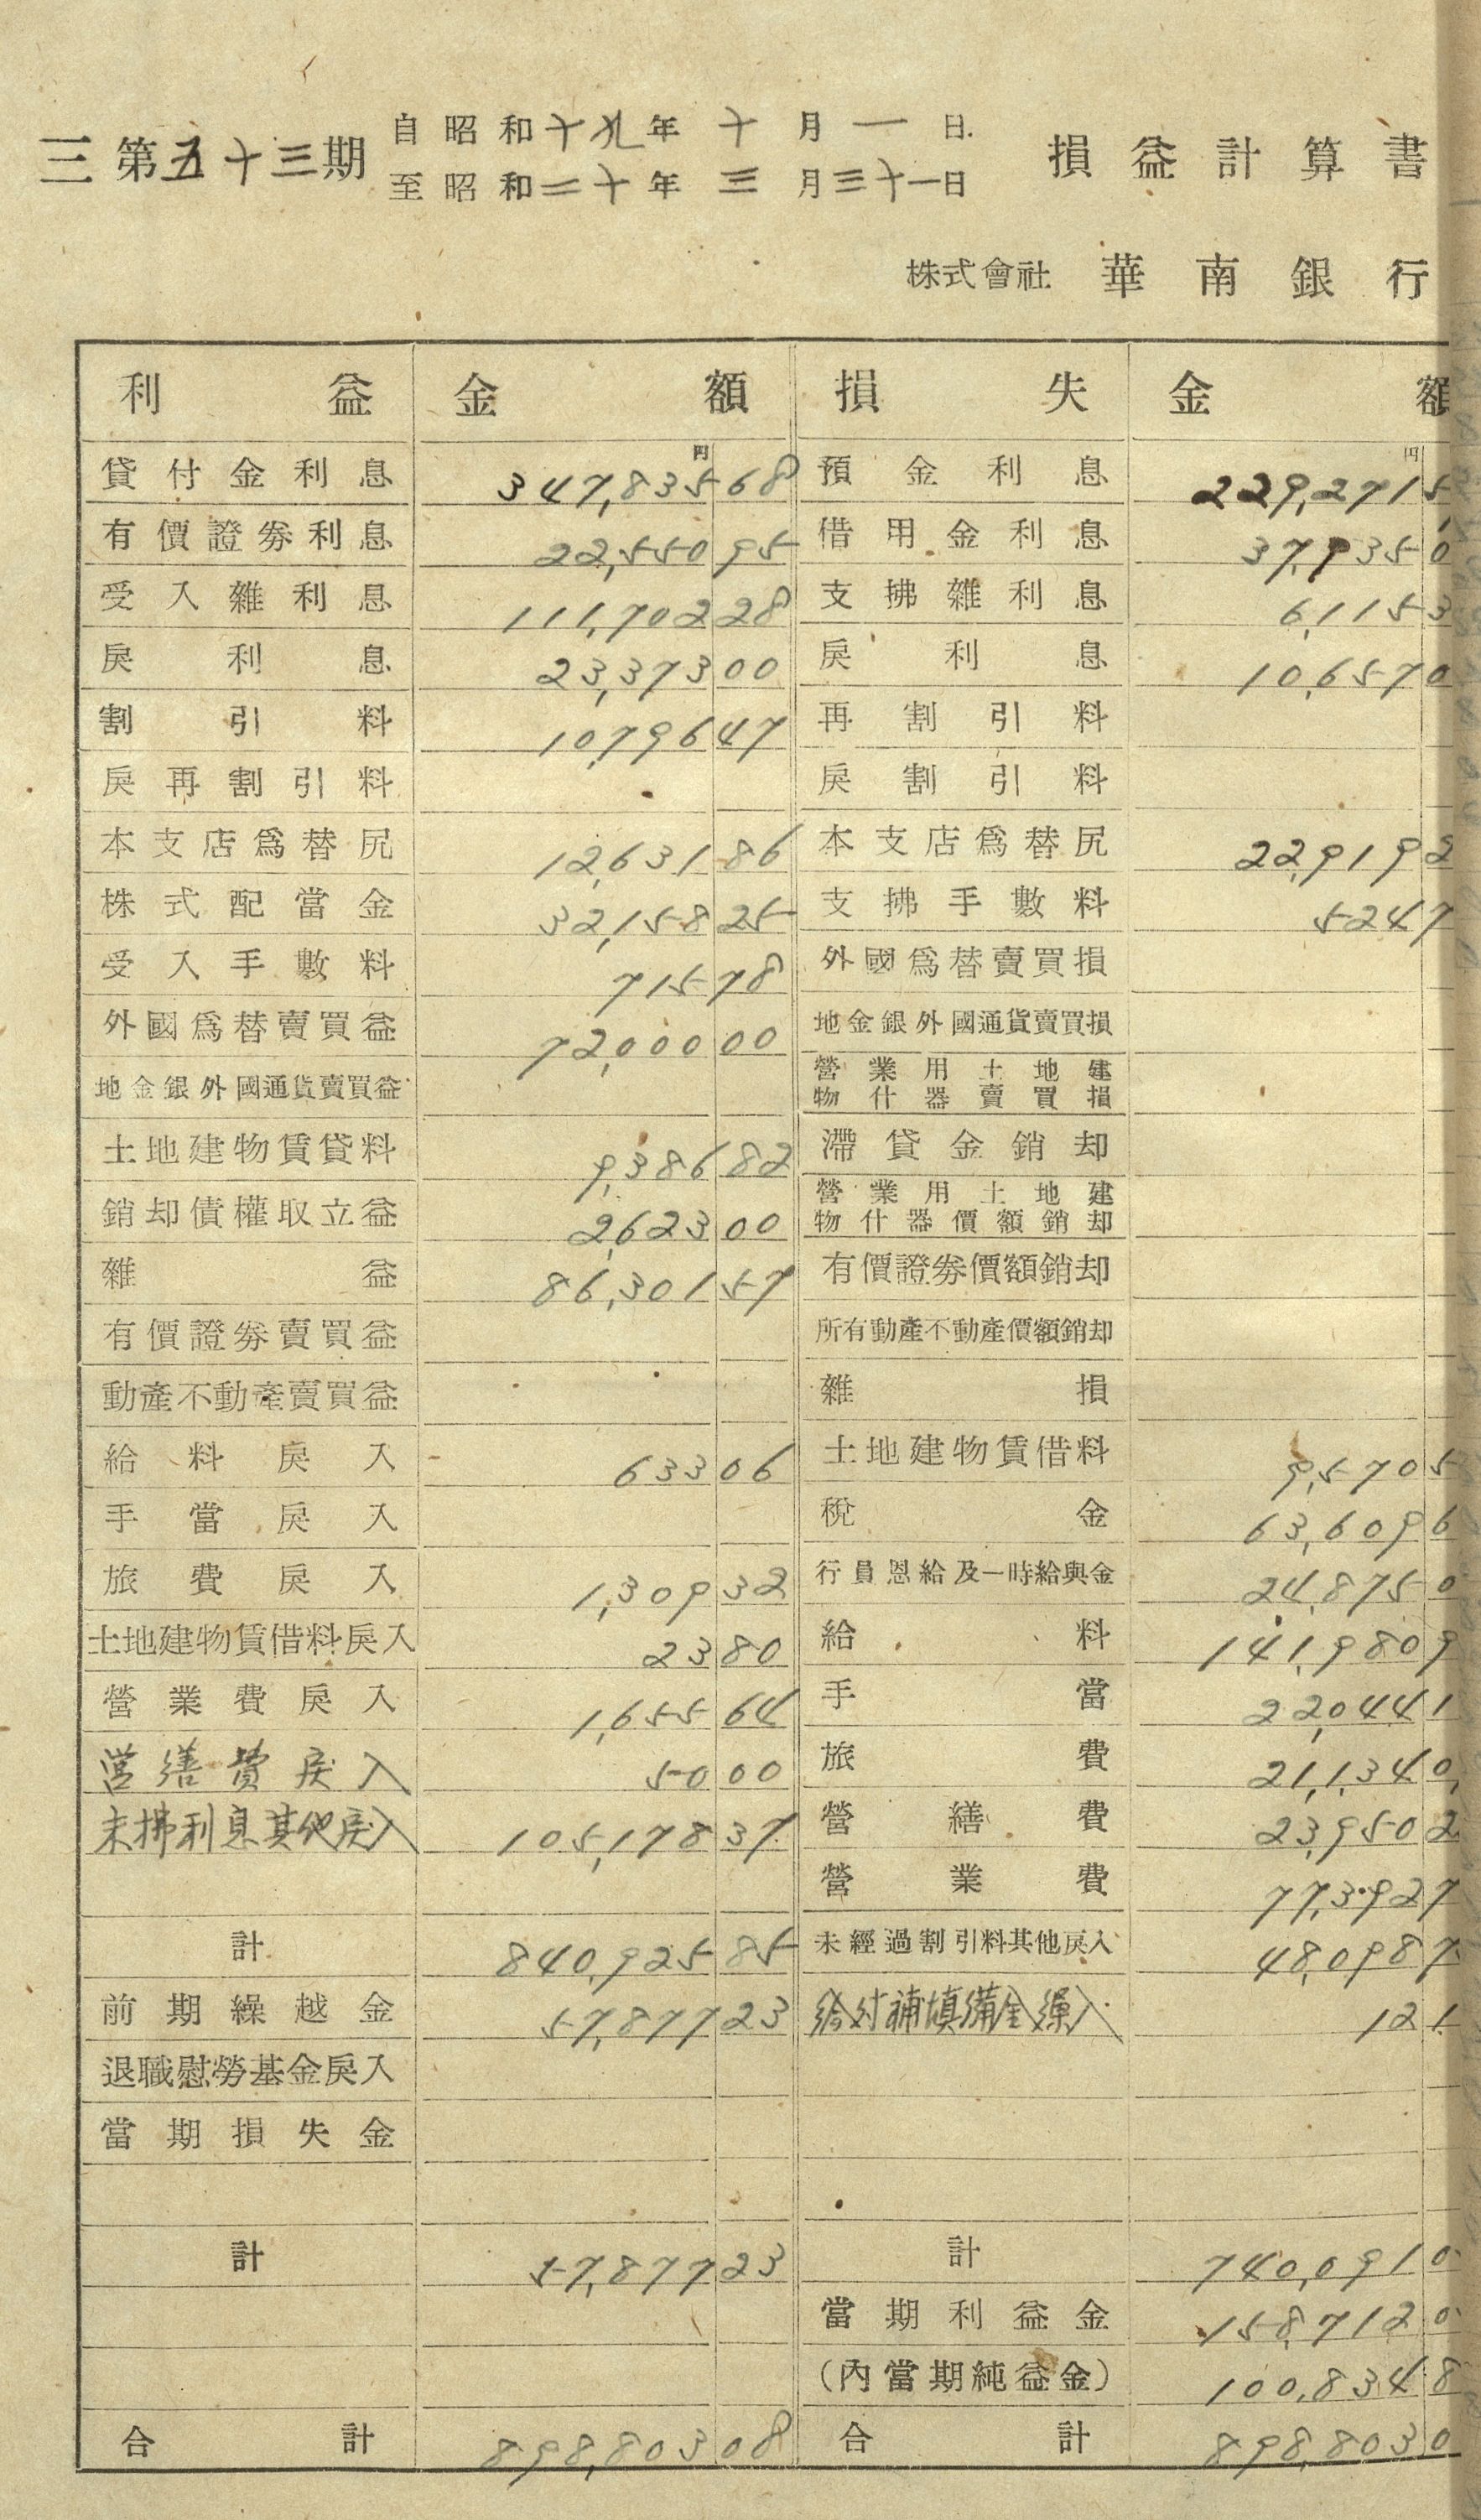 三 第五十三期 自昭和十九年 十 月 一 日
至昭和二十年 三 月三十一日
損益計算書
株式會社 華南銀行
利益 金額 損失 金額
円 円
貸付金利息 347,835 68 預金利息 229,271 5
有價證券利息 22,550 95 借用金利息 37,935 0
受入雜利息 111,702 28 支拂雜利息 6,115 3
戾利息 23,373 00 戾利息 10,657 0
割引料 10,796 47 再割引料
戾再割引料 戾割引料
本支店爲替尻 12,631 86 本支店爲替尻 22,919 2
株式配當金 32,158 25 支拂手數料 524 7
受入手數料 715 78 外國爲替賣買損
外國爲替賣買益 72,000 00 地金銀外國通貨賣買損
地金銀外國通貨賣買益 營業用土地建物什器賣買損
土地建物賃貸料 9,386 82 滯貸金銷却
銷却債權取立益 2,623 00 營業用土地建物什器價額銷却
雜益 86,301 57 有價證券價額銷却
有價證券賣買益 所有動產不動產價額銷却
動產不動產賣買益 雜損
給料戾入 633 06 土地建物賃借料 9,570 5
手當戾入 稅金 63,609 6
旅費戾入 1,309 32 行員恩給及一時給與金 24,875 0
土地建物賃借料戾入 23 80 給料 141,980 9
營業費戾入 1,655 64 手當 22,044 1
営繕費戾入 50 00 旅費 21,134 0
未拂利息其他戾入 105,178 37 營繕費 23,950 2
營業費 77,392 7
計 840,925 85 未經過割引料其他戾入 48,098 7
前期繰越金 57,877 23 給付補塡備金繰入 12 1
退職慰勞基金戾入
當期損失金
計 57,877 23 計 740,091 0
當期利益金 158,712 0
(內當期純益金) 100,834 8
合計 898,803 08 合計 898,803 0